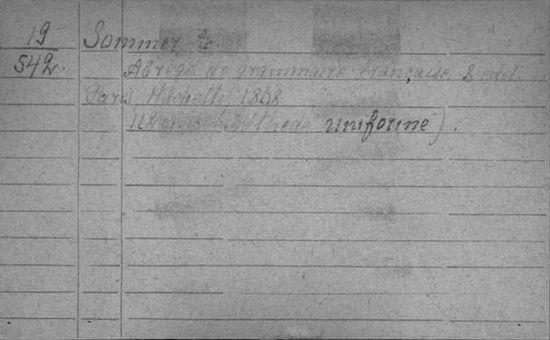 19
542.
Sommer E.
Abrégé de grammaire française, 8 édit.
Paris, Hachette, 1868
methode uniforme).